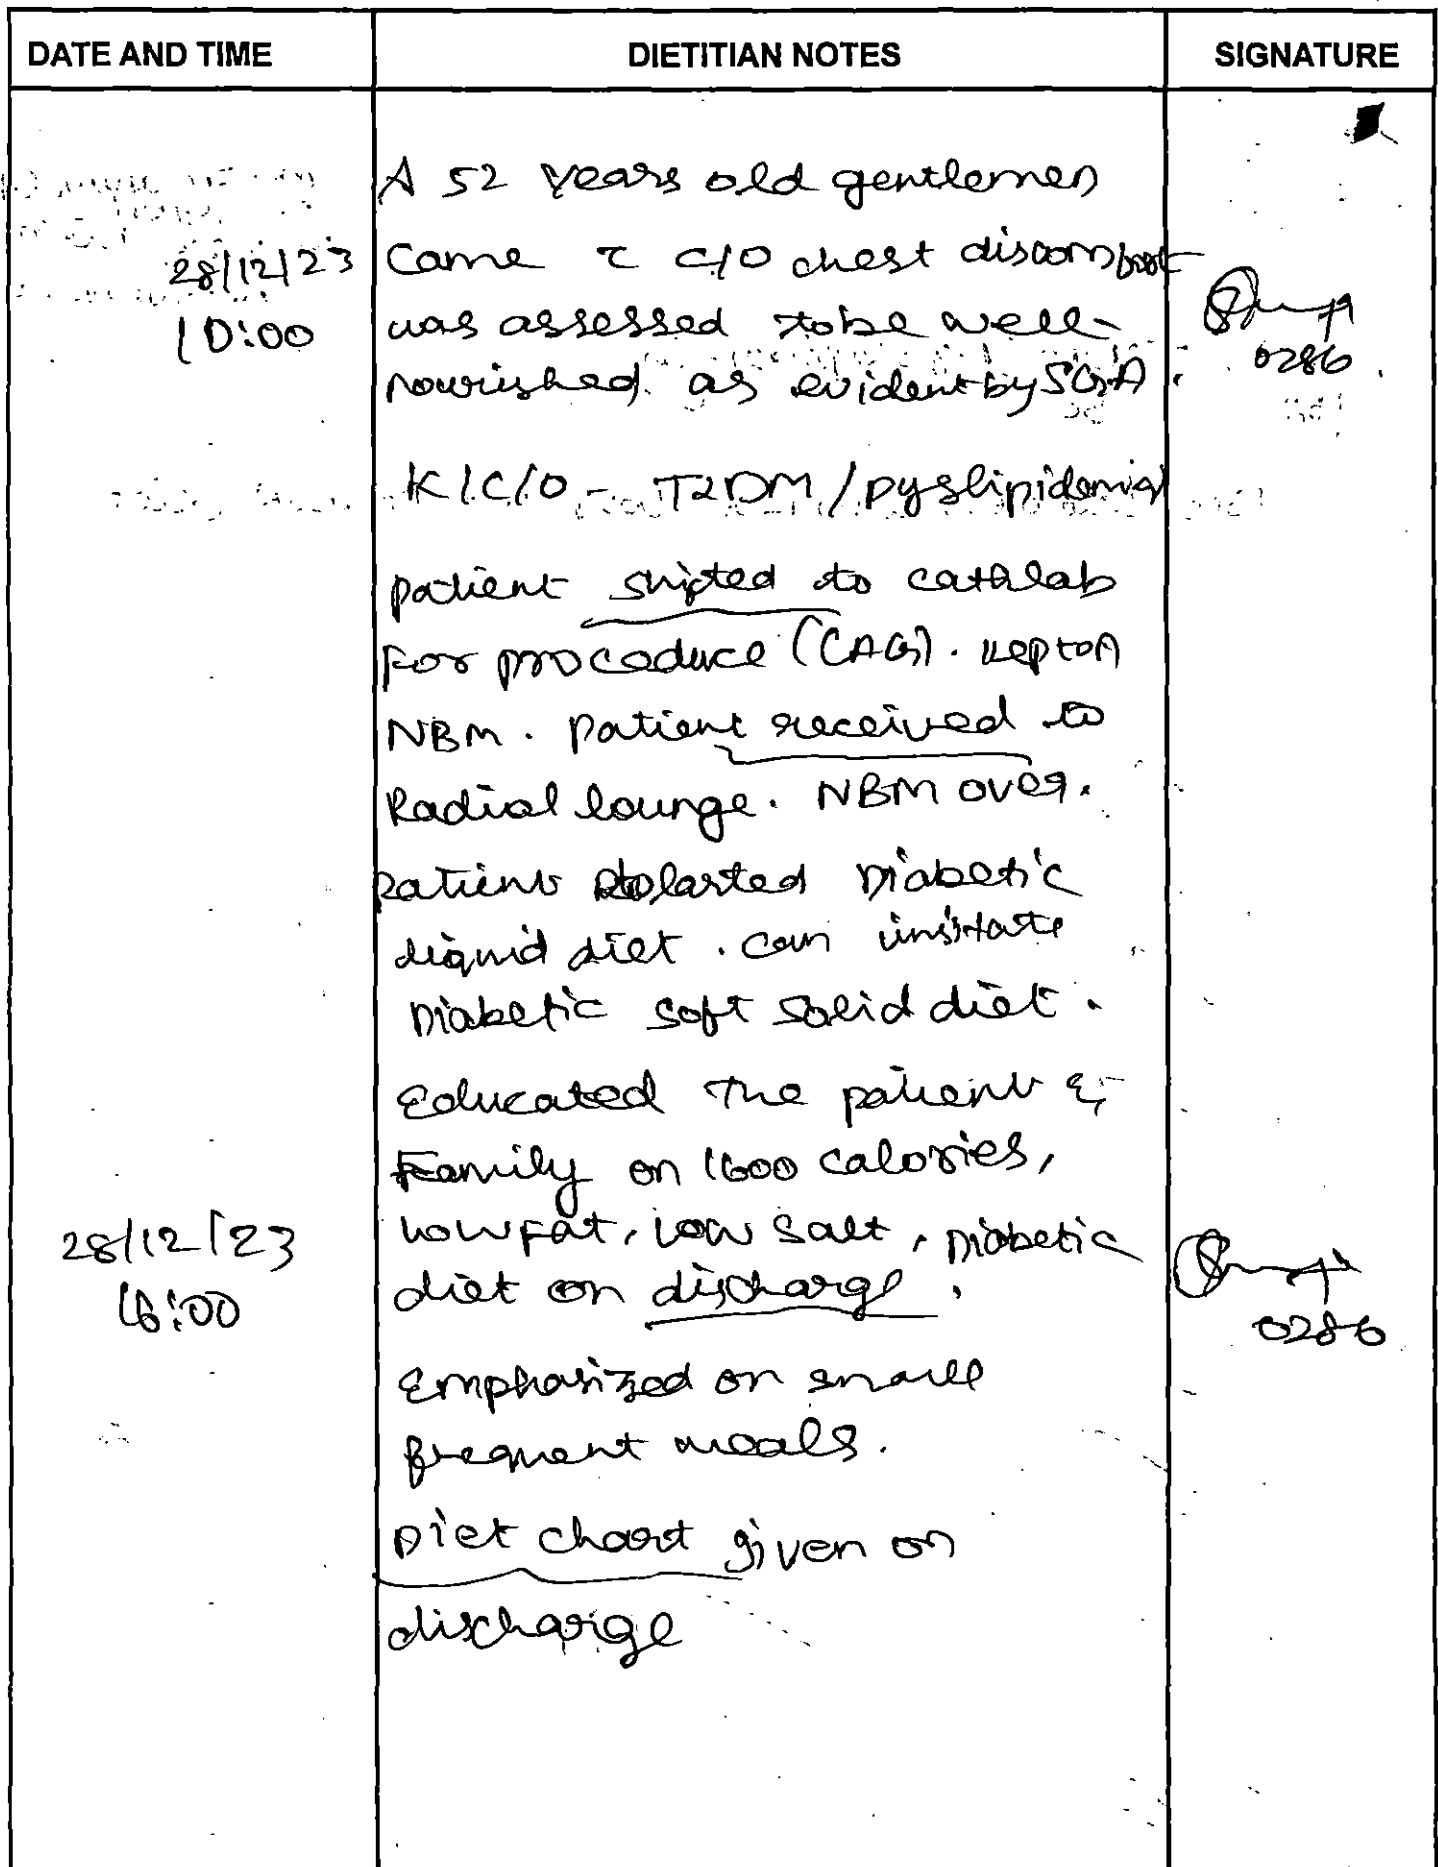 DATE AND TIME DIETITIAN NOTES SIGNATURE
A 52 years old gentlemen
28/12/23 Came c̄ c/o chest discomfort
10:00 was assessed to be well-
nourished as evident by SGA.
0286
K/C/O - T2DM / Dyslipidemia
patient shifted to cathlab
For procedure (CAG). Kept on
NBM. Patient received to
Radial lounge. NBM over.
patient tolarted Diabetic
liquid diet. can
Diabetic soft solid diet.
Educated The patient &
Family on 1600 calories,
28/12/23 Low fat, low salt, Diabetic
16:00 diet on discharge.
0286
Emphasized on small
frequent meals.
Diet chart given on
discharge